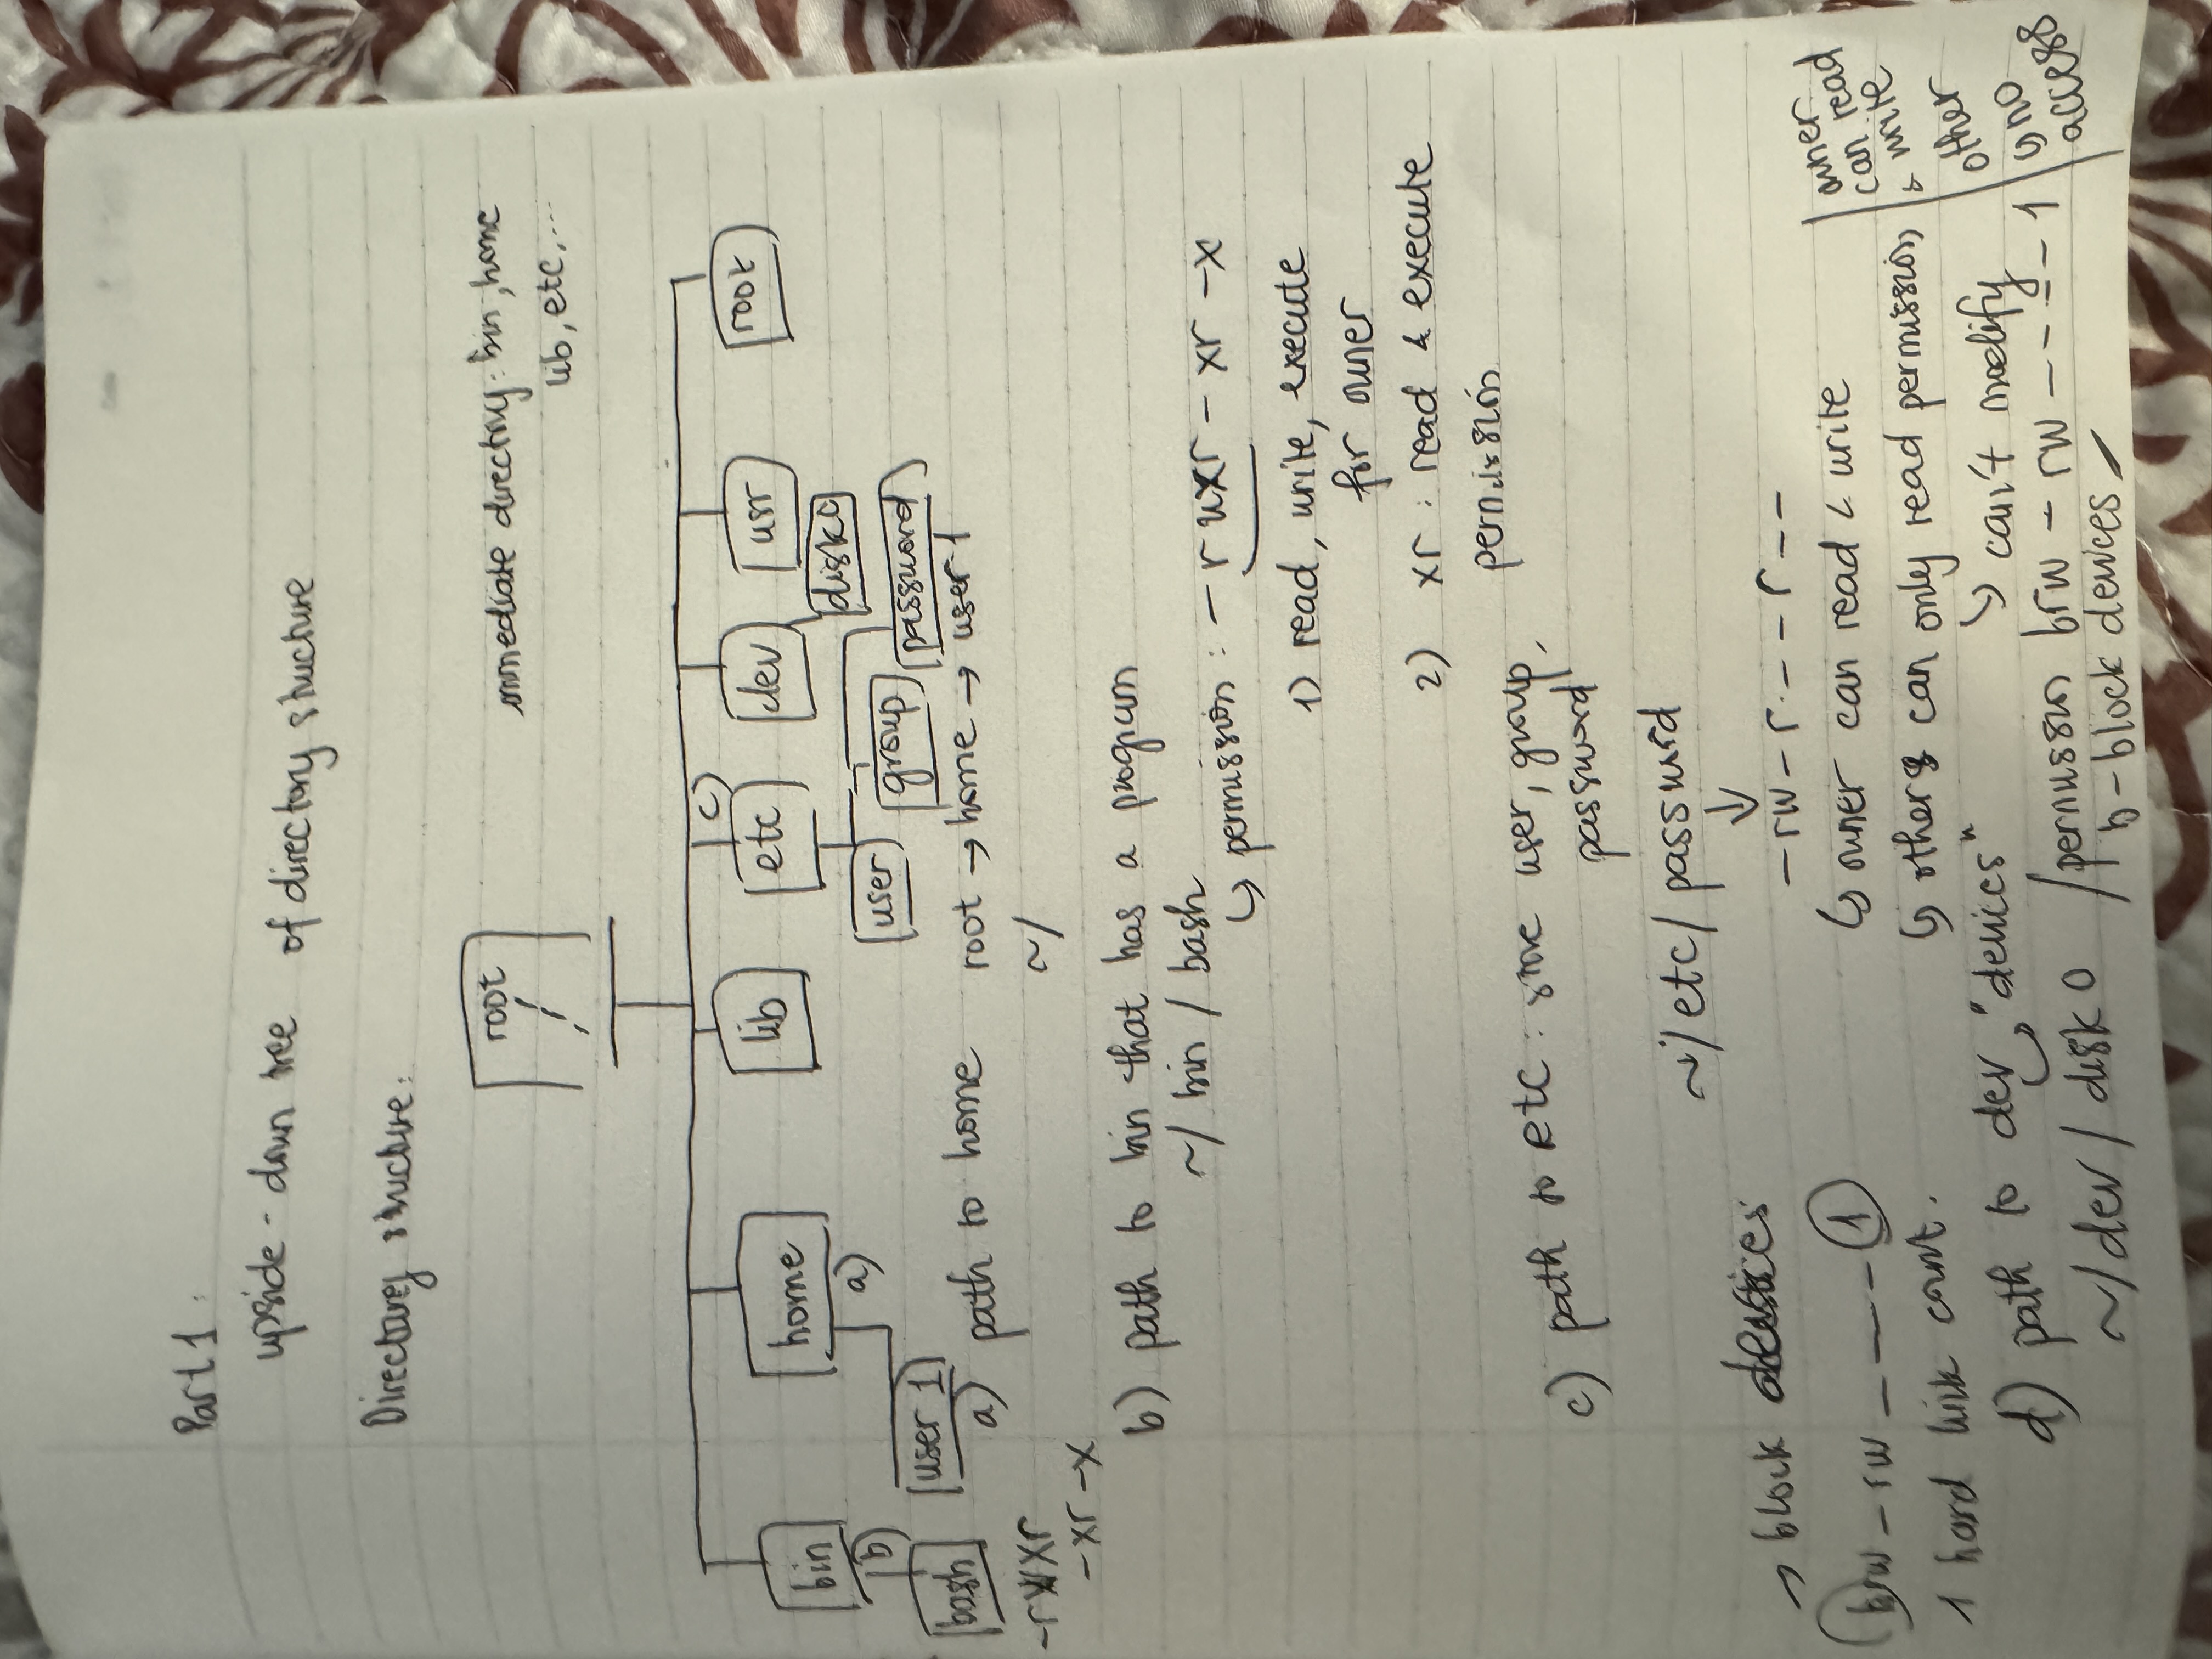 Part 1:
upside-down tree of directory structure
Directory structure:
root
/
immediate directory: bin, home
lib, etc, ...
bin
home
lib
etc
c)
dev
usr
root
b)
a)
disk0
user
group
password
bash
user 1
-rwxr
-xr-x
a) path to home root → home → user 1
~/
b) path to bin that has a program
~/bin/bash
↳ permission: -rwxr-xr-x
1) read, write, execute
for owner
2) xr: read & execute
permission
c) path to etc: store user, group,
password
~/etc/password
↓
-rw-r--r--
↳ owner can read & write
↳ others can only read permission
↳ can't modify
→ block devices
brw-rw---- 1
1 hard link count.
d) path to dev "devices"
~/dev/disk0 /permission brw-rw---- 1
b-block devices
owner
can read
& write
other
↳ no
access